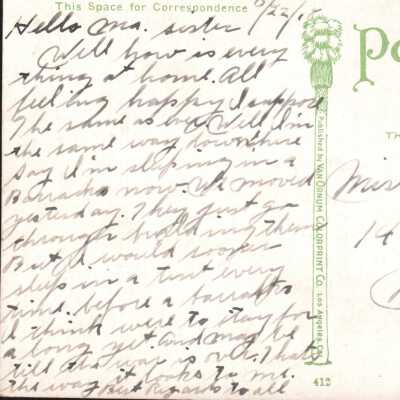 This Space for Correspondence
Hello Ma. sister
Well how is every
thing at home. All
feeling happy I suppose
The same as ever. Well I'm
the same way down here
Say I'm sleeping in a
Barracks now. We moved
yesterday. They just go
through building them
But I would sooner
sleep in a tent every
time before a barracks
I think were to stay for
a long yet and may be
till the war is over. I hate
the way it looks to me.
Best Regards to all
Po
TH
Published by VAN ORNUM COLORPRINT CO. Los Angeles, Cal.
14
412